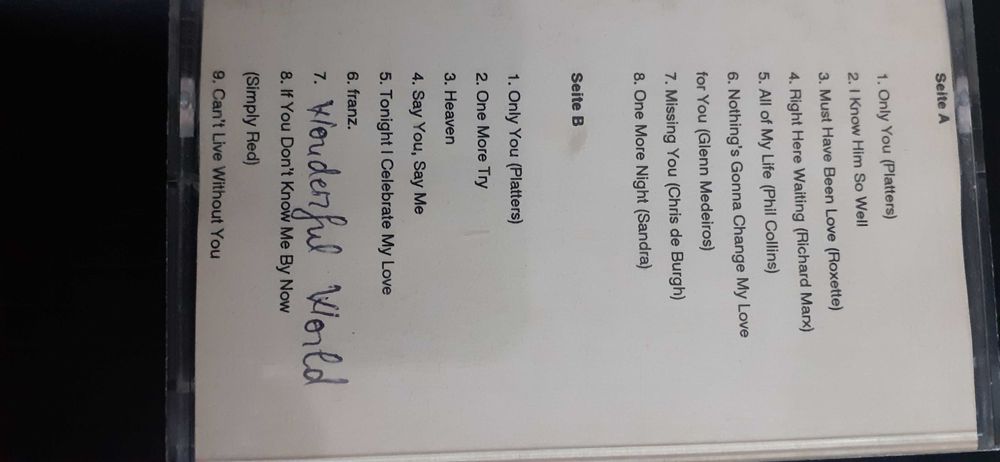 Seite A
1. Only You (Platters)
2. I Know Him So Well
3. Must Have Been Love (Roxette)
4. Right Here Waiting (Richard Marx)
5. All of My Life (Phil Collins)
6. Nothing's Gonna Change My Love
for You (Glenn Medeiros)
7. Missing You (Chris de Burgh)
8. One More Night (Sandra)
Seite B
1. Only You (Platters)
2. One More Try
3. Heaven
4. Say You, Say Me
5. Tonight I Celebrate My Love
6. franz.
7. Wonderful World
8. If You Don't Know Me By Now
(Simply Red)
9. Can't Live Without You